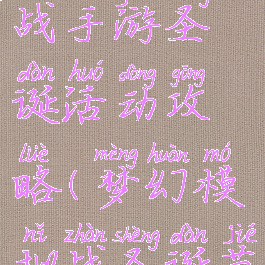 战手游圣
dàn huó dòng gōng
诞活动攻
lüè mèng huàn mó
略(梦幻模
nǐ zhàn shèng dàn jié
拟战圣诞节